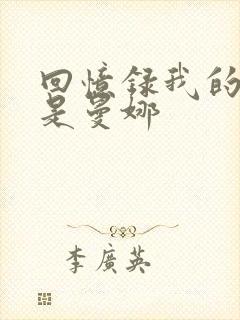 回憶録我的
是曼娜
李廣英